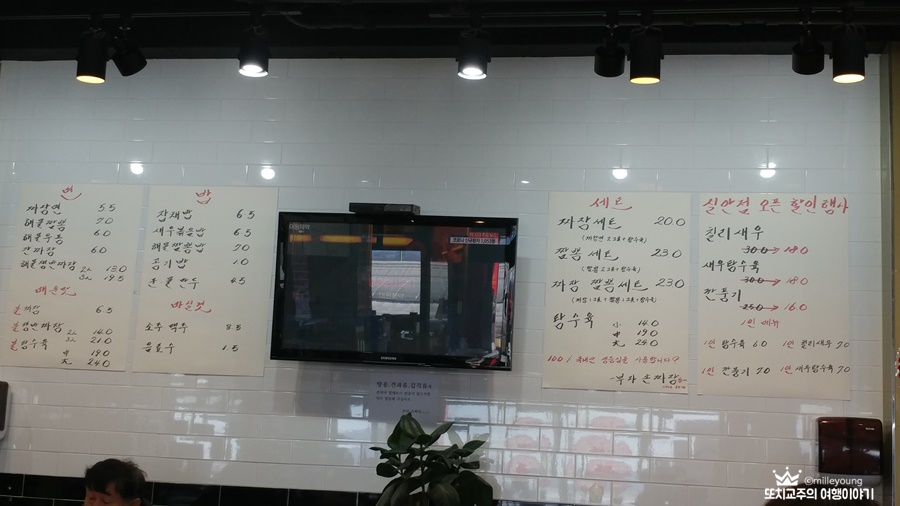 면
짜장면 5.5
해물짬뽕 7.0
해물우동 6.0
간짜장 6.0
해물쟁반짜장 2人 13.0
3人 19.5
매운맛
불짜장 6.5
불쟁반짜장 2人 14.0
3人 21.0
불탕수육 中 19.0
大 24.0
밥
잡채밥 6.5
새우볶음밥 6.5
해물짬뽕밥 7.0
공기밥 1.0
4.5
마실것
소주 맥주 3.5
음료수 1.5
SAMSUNG
세트
짜장세트 20.0
짬뽕세트 23.0
짜장 짬뽕 세트 23.0
탕수육 小 14.0
中 19.0
大 24.0
100% 국내산 생등심을 사용합니다
실안점 오픈 할인행사
칠리새우
30.0→18.0
새우탕수육
30.0→18.0
깐풍기
25.0→16.0
1인 메뉴
1인 탕수육 6.0 1인 칠리새우 7.0
1인 깐풍기 7.0 1인 새우탕수육 7.0
@milleyoung
또치교주의 여행이야기